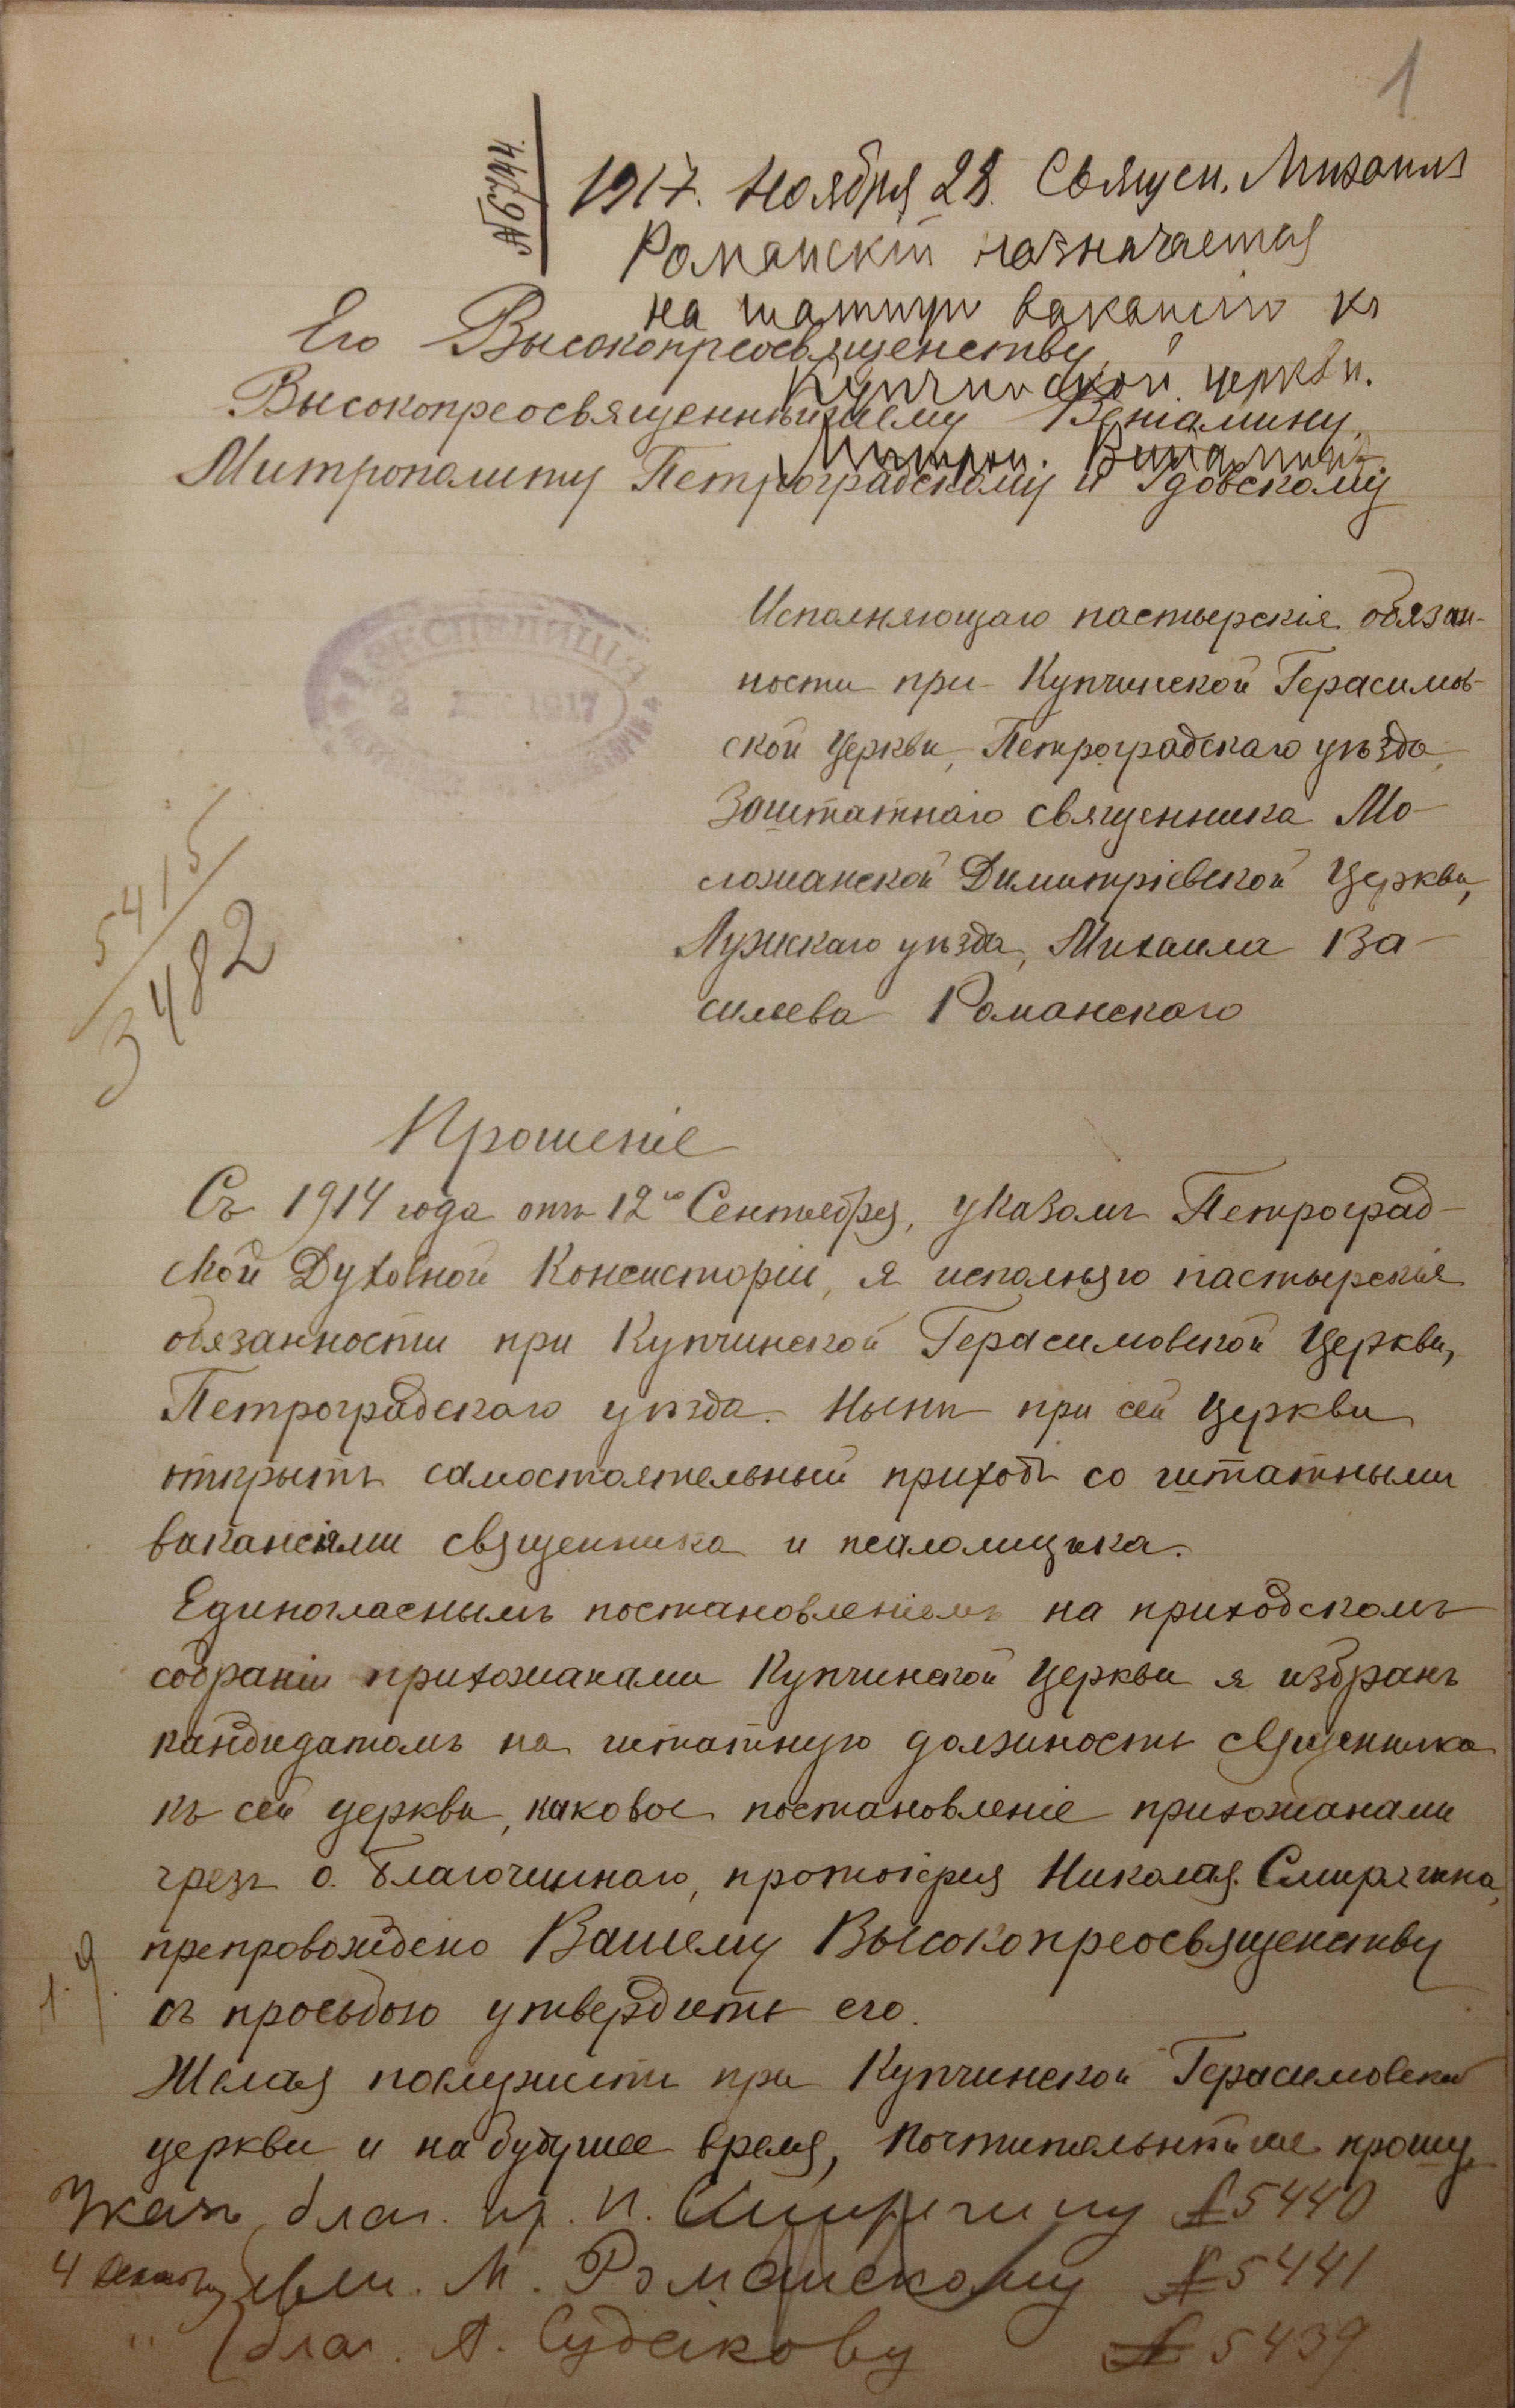 1
№ 6744.
1917. Ноября 28. Священ. Михаилъ
Романскій назначается
на штатную вакансію къ
Купчинской церкви.
Митроп. Веніаминъ
Его Высокопреосвященству,
Высокопреосвященнѣйшему Веніамину,
Митрополиту Петроградскому и Гдовскому
2 1917
Исполняющаго пастырскія обязан-
ности при Купчинской Герасимов-
ской Церкви, Петроградскаго уѣзда,
Заштатнаго священника Мо-
ложанской Димитріевской Церкви,
Лужскаго уѣзда, Михаила Ва-
сильева Романскаго
5415
3482
Прошеніе
Съ 1914 года отъ 12го Сентября, указомъ Петроград-
ской Духовной Консисторіи, я исполняю пастырскія
обязанности при Купчинской Герасимовской Церкви,
Петроградскаго уѣзда. Нынѣ при сей Церкви
открытъ самостоятельный приходъ со штатными
вакансіями священника и псаломщика.
Единогласнымъ постановленіемъ на приходскомъ
собраніи прихожанами Купчинской Церкви я избранъ
кандидатомъ на штатную должность священника
къ сей церкви, каковое постановленіе прихожанами
чрезъ о. Благочиннаго, протоіерея Николая Смирягина,
препровождено Вашему Высокопреосвященству
съ просьбою утвердить его.
Желая послужить при Купчинской Герасимовской
церкви и на будущее время, почтительнѣйше прошу
Указъ благ. пр. Н. Смирягину № 5440
4 Декабр свящ. М. Романскому № 5441
" благ. А. Судакову № 5439